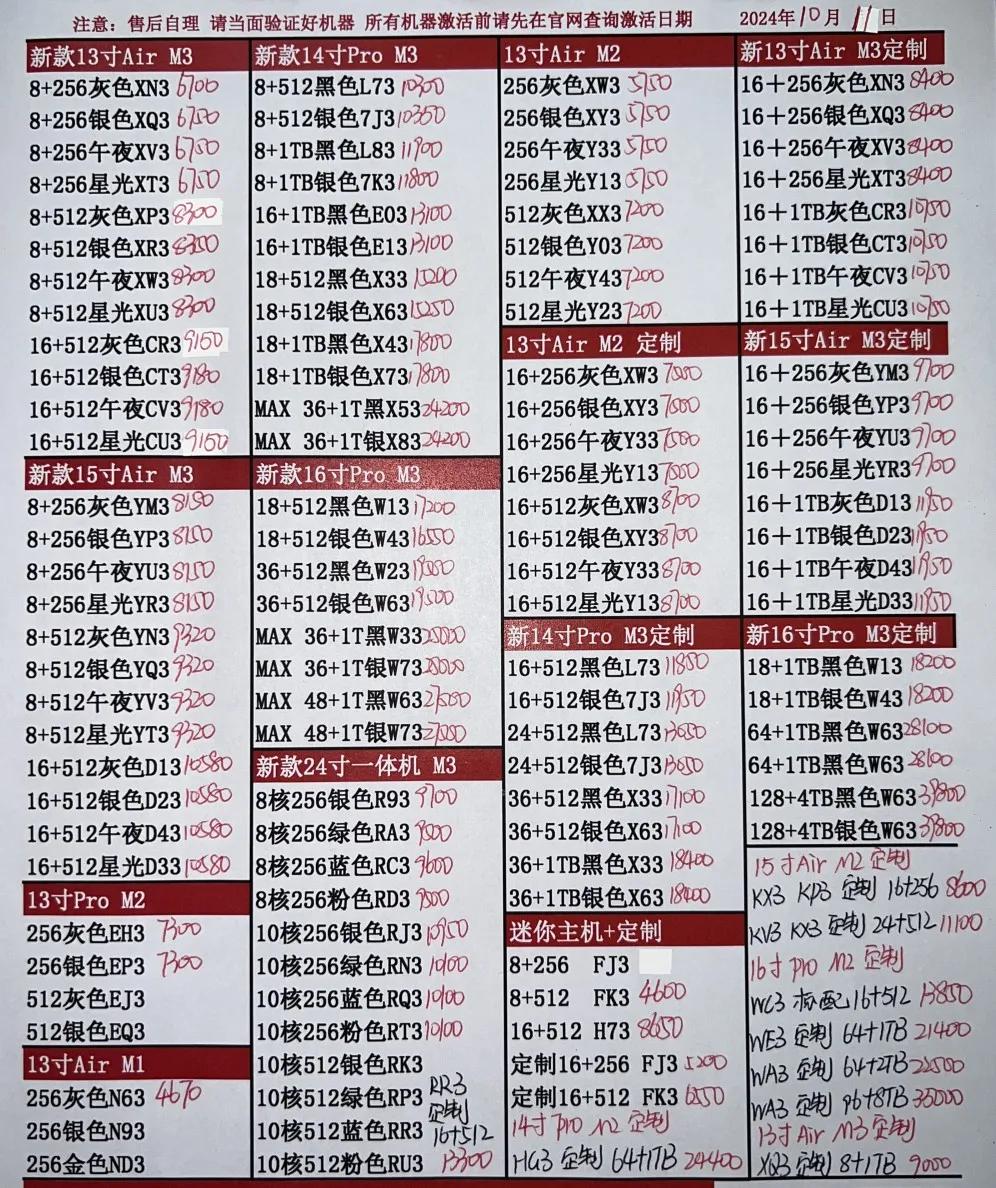 注意：售后自理 请当面验证好机器 所有机器激活前请先在官网查询激活日期 2024年10月11日
新款13寸Air M3
8+256灰色XN3 6700
8+256银色XQ3 6750
8+256午夜XV3 6750
8+256星光XT3 6750
8+512灰色XP3 8300
8+512银色XR3 8350
8+512午夜XW3 8300
8+512星光XU3 8300
16+512灰色CR3 9150
16+512银色CT3 9180
16+512午夜CV3 9180
16+512星光CU3 9150
新款15寸Air M3
8+256灰色YM3 8150
8+256银色YP3 8150
8+256午夜YU3 8150
8+256星光YR3 8150
8+512灰色YN3 9320
8+512银色YQ3 9320
8+512午夜YV3 9320
8+512星光YT3 9320
16+512灰色D13 10580
16+512银色D23 10580
16+512午夜D43 10580
16+512星光D33 10580
13寸Pro M2
256灰色EH3 7300
256银色EP3 7300
512灰色EJ3
512银色EQ3
13寸Air M1
256灰色N63 4670
256银色N93
256金色ND3
新款14寸Pro M3
8+512黑色L73 10300
8+512银色7J3 10350
8+1TB黑色L83 11900
8+1TB银色7K3 11800
16+1TB黑色E03 13100
16+1TB银色E13 13100
18+512黑色X33 15200
18+512银色X63 15250
18+1TB黑色X43 17800
18+1TB银色X73 17800
MAX 36+1T黑X53 24200
MAX 36+1T银X83 24200
新款16寸Pro M3
18+512黑色W13 17200
18+512银色W43 16550
36+512黑色W23
36+512银色W63 19500
MAX 36+1T黑W33 25000
MAX 36+1T银W73
MAX 48+1T黑W63 27500
MAX 48+1T银W73 27500
新款24寸一体机 M3
8核256银色R93 9700
8核256绿色RA3 9500
8核256蓝色RC3 9600
8核256粉色RD3 9500
10核256银色RJ3 10950
10核256绿色RN3 10100
10核256蓝色RQ3 10100
10核256粉色RT3 10100
10核512银色RK3
10核512绿色RP3 RR3
定制
10核512蓝色RR3 16+512
10核512粉色RU3 13300
13寸Air M2
256灰色XW3 5750
256银色XY3 5750
256午夜Y33 5750
256星光Y13 5750
512灰色XX3 7200
512银色Y03 7200
512午夜Y43 7200
512星光Y23 7200
13寸Air M2 定制
16+256灰色XW3 7500
16+256银色XY3 7500
16+256午夜Y33 7500
16+256星光Y13 7500
16+512灰色XW3 8700
16+512银色XY3 8700
16+512午夜Y33 8700
16+512星光Y13 8700
新14寸Pro M3定制
16+512黑色L73 11850
16+512银色7J3 11950
24+512黑色L73 13650
24+512银色7J3 13650
36+512黑色X33 17100
36+512银色X63 17100
36+1TB黑色X33 18400
36+1TB银色X63 18400
迷你主机+定制
8+256 FJ3
8+512 FK3 4600
16+512 H73 8650
定制16+256 FJ3 5200
定制16+512 FK3 6550
14寸Pro M2 定制
HG3 定制 64+1TB 24400
新13寸Air M3定制
16＋256灰色XN3 8400
16＋256银色XQ3 8400
16＋256午夜XV3 8400
16＋256星光XT3 8400
16＋1TB灰色CR3 10750
16＋1TB银色CT3 10750
16＋1TB午夜CV3 10750
16＋1TB星光CU3 10750
新15寸Air M3定制
16＋256灰色YM3 9700
16＋256银色YP3 9700
16＋256午夜YU3 9700
16＋256星光YR3 9700
16＋1TB灰色D13 11950
16＋1TB银色D23 11950
16＋1TB午夜D43 11950
16＋1TB星光D33 11950
新16寸Pro M3定制
18+1TB黑色W13 18200
18+1TB银色W43 18200
64+1TB黑色W63 28100
64+1TB黑色W63 28100
128+4TB黑色W63 39800
128+4TB银色W63 39800
15寸Air M2 定制
KX3 KP3 定制 16+256 8600
KV3 KX3 定制 24+512 11100
16寸 Pro M2 定制
WC3 标配 16+512 13850
WE3 定制 64+1TB 21400
WA3 定制 64+2TB 22500
WA3 定制 96+8TB 35000
13寸Air M3定制
XQ3 定制 8+1TB 9000